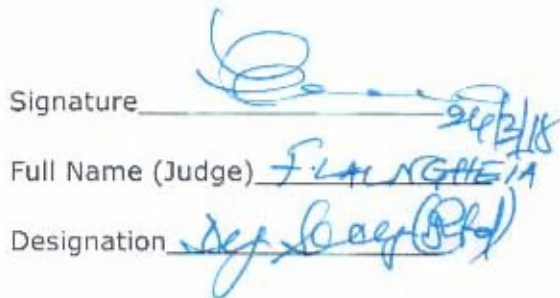 Signature 26/2/18
Full Name (Judge) F. LALNGHEIA
Designation Dy